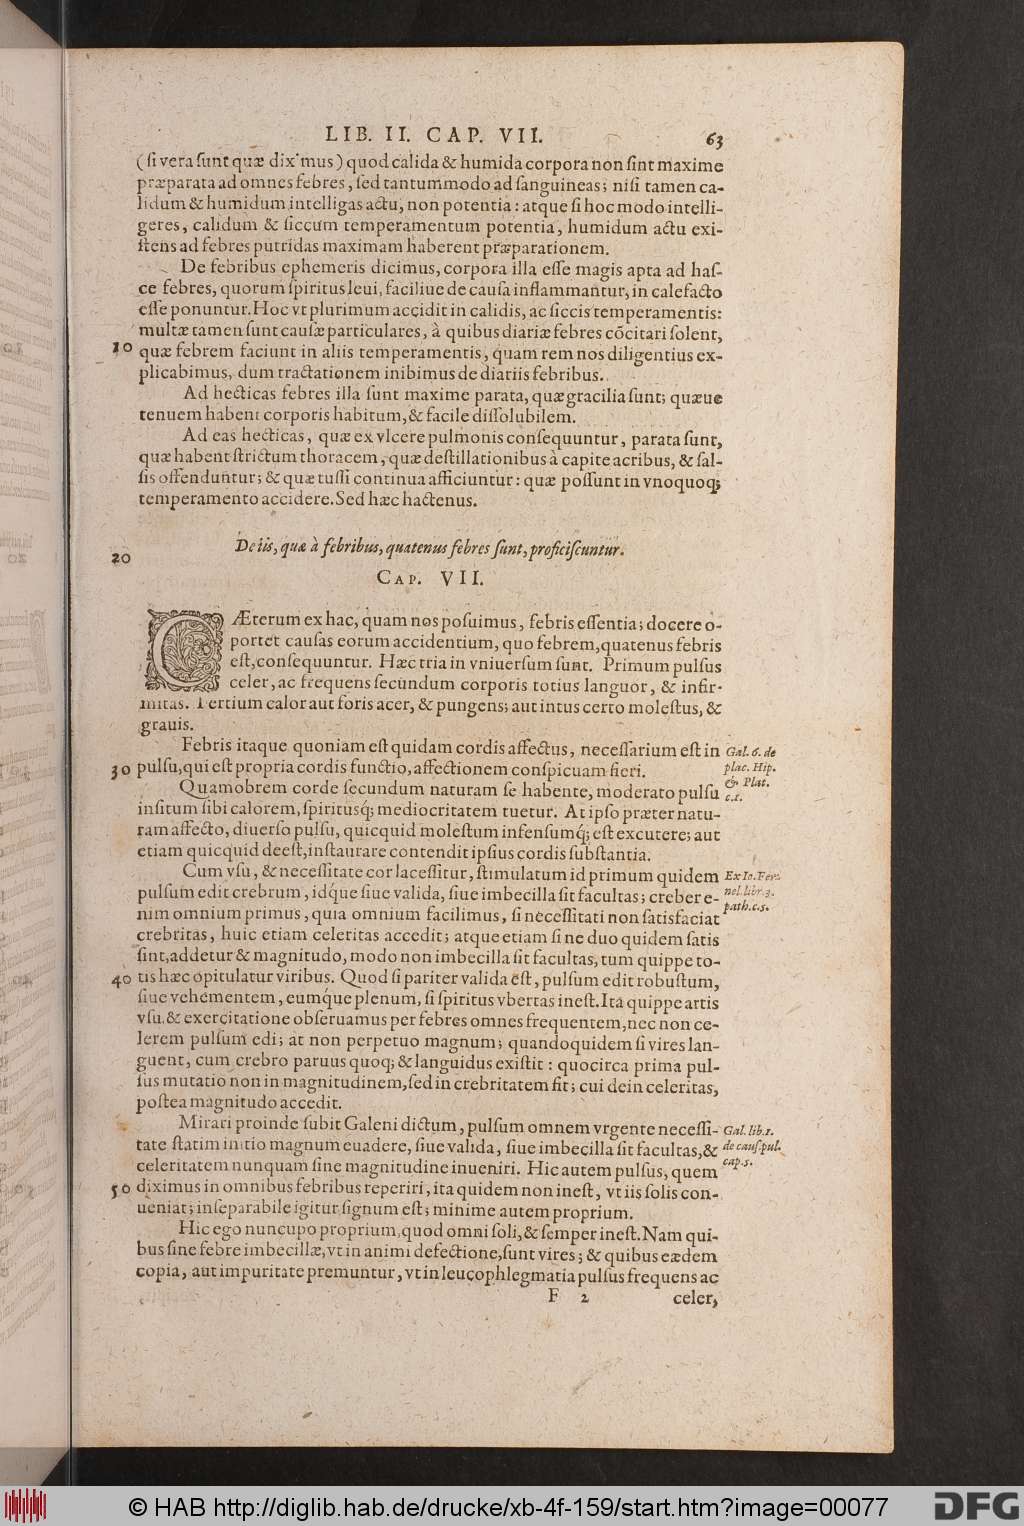 LIB. II. CAP. VII. 63
(si vera sunt quæ dix'mus) quod calida & humida corpora non sint maxime
præparata ad omnes febres, sed tantummodo ad sanguineas; nisi tamen ca-
lidum & humidum intelligas actu, non potentia: atque si hoc modo intelli-
geres, calidum & siccum temperamentum potentia, humidum actu exi-
stens ad febres putridas maximam haberent præparationem.
De febribus ephemeris dicimus, corpora illa esse magis apta ad has-
ce febres, quorum spiritus leui, faciliue de causa inflammantur, in calefacto
esse ponuntur. Hoc vt plurimum accidit in calidis, ac siccis temperamentis:
multæ tamen sunt causæ particulares, à quibus diariæ febres cõcitari solent,
10 quæ febrem faciunt in aliis temperamentis, quam rem nos diligentius ex-
plicabimus, dum tractationem inibimus de diariis febribus.
Ad hecticas febres illa sunt maxime parata, quæ gracilia sunt; quæue
tenuem habent corporis habitum, & facile dissolubilem.
Ad eas hecticas, quæ ex vlcere pulmonis consequuntur, parata sunt,
quæ habent strictum thoracem, quæ destillationibus à capite acribus, & sal-
sis offenduntur; & quæ tussi continua afficiuntur: quæ possunt in vnoquoq;
temperamento accidere. Sed hæc hactenus.
De iis, quæ à febribus, quatenus febres sunt, proficiscuntur.
20
CAP. VII.
CÆterum ex hac, quam nos posuimus, febris essentia; docere o-
portet causas eorum accidentium, quo febrem, quatenus febris
est, consequuntur. Hæc tria in vniuersum sunt. Primum pulsus
celer, ac frequens secundum corporis totius languor, & infir-
mitas. Tertium calor aut foris acer, & pungens; aut intus certo molestus, &
grauis.
Febris itaque quoniam est quidam cordis affectus, necessarium est in
30 pulsu, qui est propria cordis functio, affectionem conspicuam fieri.
Gal. 6. de
plac. Hip.
& Plat.
c.1.
Quamobrem corde secundum naturam se habente, moderato pulsu
insitum sibi calorem, spiritusq́; mediocritatem tuetur. At ipso præter natu-
ram affecto, diuerso pulsu, quicquid molestum infensumq́; est excutere; aut
etiam quicquid deest, instaurare contendit ipsius cordis substantia.
Cum vsu, & necessitate cor lacessitur, stimulatum id primum quidem
pulsum edit crebrum, idq́ue siue valida, siue imbecilla sit facultas; creber e-
nim omnium primus, quia omnium facilimus, si necessitati non satisfaciat
crebritas, huic etiam celeritas accedit; atque etiam si ne duo quidem satis
sint, addetur & magnitudo, modo non imbecilla sit facultas, tum quippe to-
40 tis hæc opitulatur viribus. Quod si pariter valida est, pulsum edit robustum,
siue vehementem, eumq́ue plenum, si spiritus vbertas inest. Ita quippe artis
vsu, & exercitatione obseruamus per febres omnes frequentem, nec non ce-
lerem pulsum edi; at non perpetuo magnum; quandoquidem si vires lan-
guent, cum crebro paruus quoq; & languidus existit: quocirca prima pul-
sus mutatio non in magnitudinem, sed in crebritatem fit; cui dein celeritas,
postea magnitudo accedit.
Ex Io. Fer-
nel. libr. 3.
path. c. 5.
Mirari proinde subit Galeni dictum, pulsum omnem vrgente necessi-
tate statim initio magnum euadere, siue valida, siue imbecilla sit facultas, &
celeritatem nunquam sine magnitudine inueniri. Hic autem pulsus, quem
50 diximus in omnibus febribus reperiri, ita quidem non inest, vt iis solis con-
ueniat; inseparabile igitur signum est; minime autem proprium.
Gal. lib. 1.
de caus. pul.
cap. 5.
Hic ego nuncupo proprium, quod omni soli, & semper inest. Nam qui-
bus sine febre imbecillæ, vt in animi defectione, sunt vires; & quibus eædem
copia, aut impuritate premuntur, vt in leucophlegmatia pulsus frequens ac
F 2 celer,
© HAB http://diglib.hab.de/drucke/xb-4f-159/start.htm?image=00077
DFG